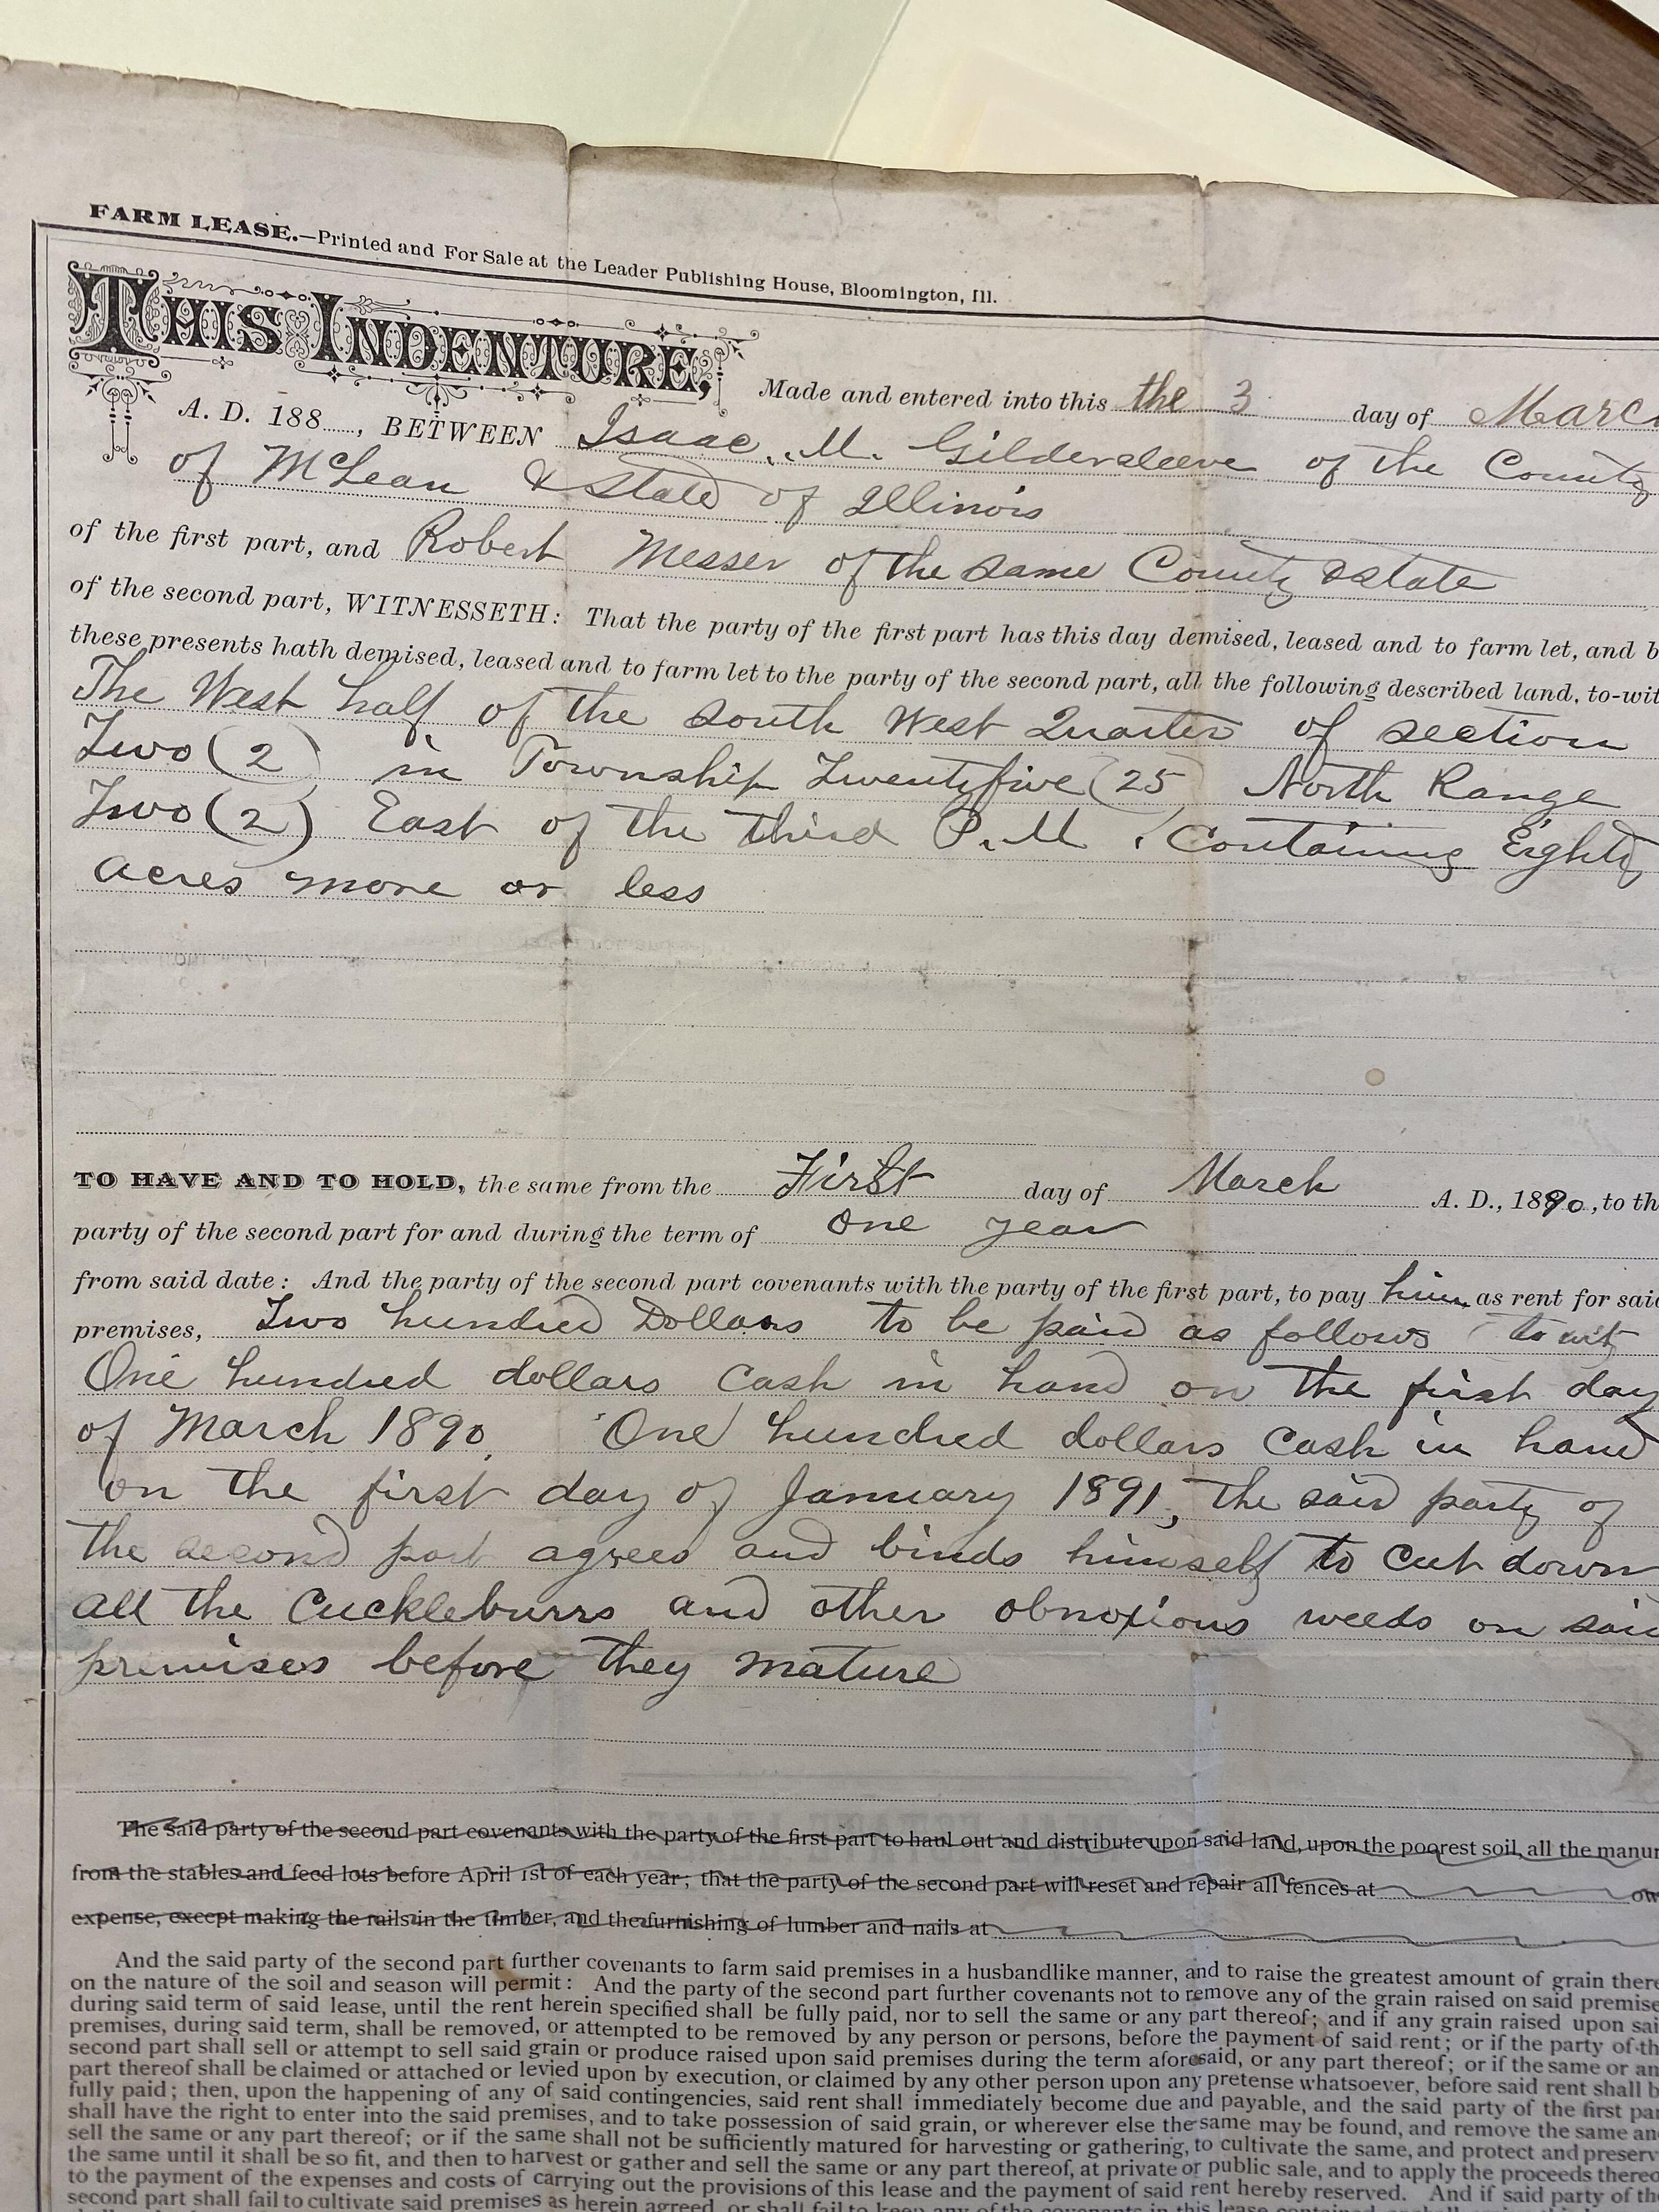 FARM LEASE.—Printed and For Sale at the Leader Publishing House, Bloomington, Ill.
THIS INDENTURE, Made and entered into this the 3 day of March
A. D. 188...., BETWEEN Isaac M. Gildersleeve of the County
of McLean & State of Illinois
of the first part, and Robert Messer of the same County & State
of the second part, WITNESSETH: That the party of the first part has this day demised, leased and to farm let, and b
these presents hath demised, leased and to farm let to the party of the second part, all the following described land, to-wit
The West half of the South West Quarter of section
Two (2) in Township Twentyfive (25) North Range
Two (2) East of the third P. M. Containing Eighty
acres more or less
TO HAVE AND TO HOLD, the same from the First day of March A. D., 1890, to th
party of the second part for and during the term of one year
from said date: And the party of the second part covenants with the party of the first part, to pay him as rent for said
premises, Two hundred Dollars to be paid as follows to wit
One hundred dollars Cash in hand on the first day
of March 1890. One hundred dollars Cash in hand
on the first day of January 1891, the said party of
the second part agrees and binds himself to cut down
all the Cuckleburrs and other obnoxious weeds on said
premises before they mature
The said party of the second part covenants with the party of the first part to haul out and distribute upon said land, upon the poorest soil, all the manur
from the stables and feed lots before April 1st of each year; that the party of the second part will reset and repair all fences at ow
expense, except making the rails in the timber, and the furnishing of lumber and nails at
And the said party of the second part further covenants to farm said premises in a husbandlike manner, and to raise the greatest amount of grain there
on the nature of the soil and season will permit: And the party of the second part further covenants not to remove any of the grain raised on said premise
during said term of said lease, until the rent herein specified shall be fully paid, nor to sell the same or any part thereof; and if any grain raised upon sai
premises, during said term, shall be removed, or attempted to be removed by any person or persons, before the payment of said rent; or if the party of th
second part shall sell or attempt to sell said grain or produce raised upon said premises during the term aforesaid, or any part thereof; or if the same or an
part thereof shall be claimed or attached or levied upon by execution, or claimed by any other person upon any pretense whatsoever, before said rent shall b
fully paid; then, upon the happening of any of said contingencies, said rent shall immediately become due and payable, and the said party of the first par
shall have the right to enter into the said premises, and to take possession of said grain, or wherever else the same may be found, and remove the same an
sell the same or any part thereof; or if the same shall not be sufficiently matured for harvesting or gathering, to cultivate the same, and protect and preserv
the same until it shall be so fit, and then to harvest or gather and sell the same or any part thereof, at private or public sale, and to apply the proceeds thereo
to the payment of the expenses and costs of carrying out the provisions of this lease and the payment of said rent hereby reserved. And if said party of the
second part shall fail to cultivate said premises as herein agreed, or shall fail to keep any of the covenants in this lease contained